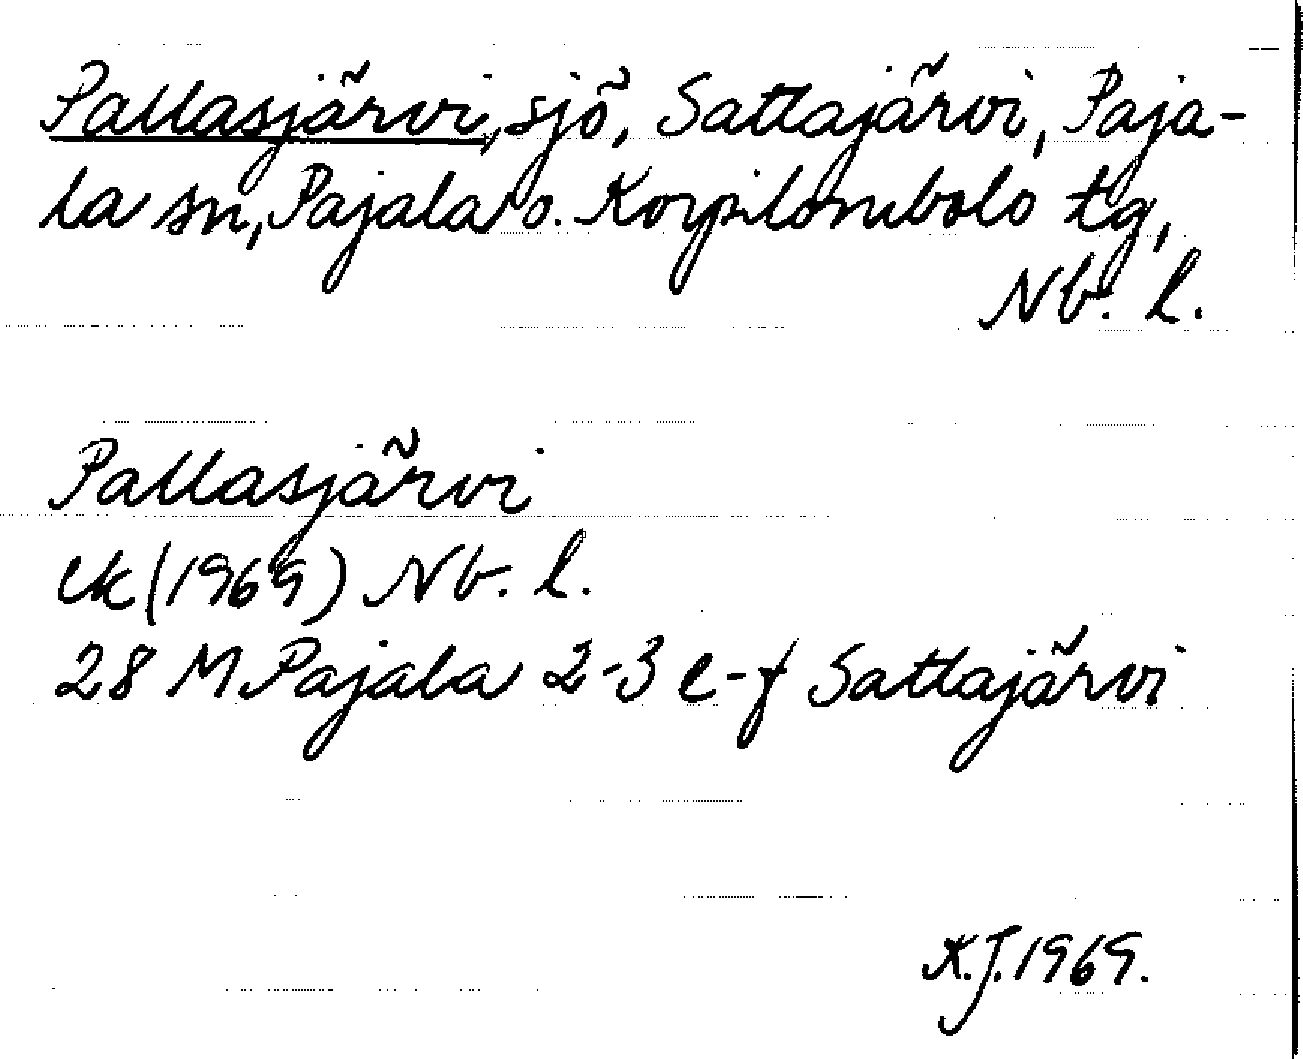 Pallasjärvi, sjö, Sattajärvi, Paja-
la sn, Pajala o. Korpilombolo tg,
Nb. l.
Pallasjärvi
ek (1969) Nb. l.
28 M Pajala 2-3 e-f Sattajärvi
K.J. 1969.